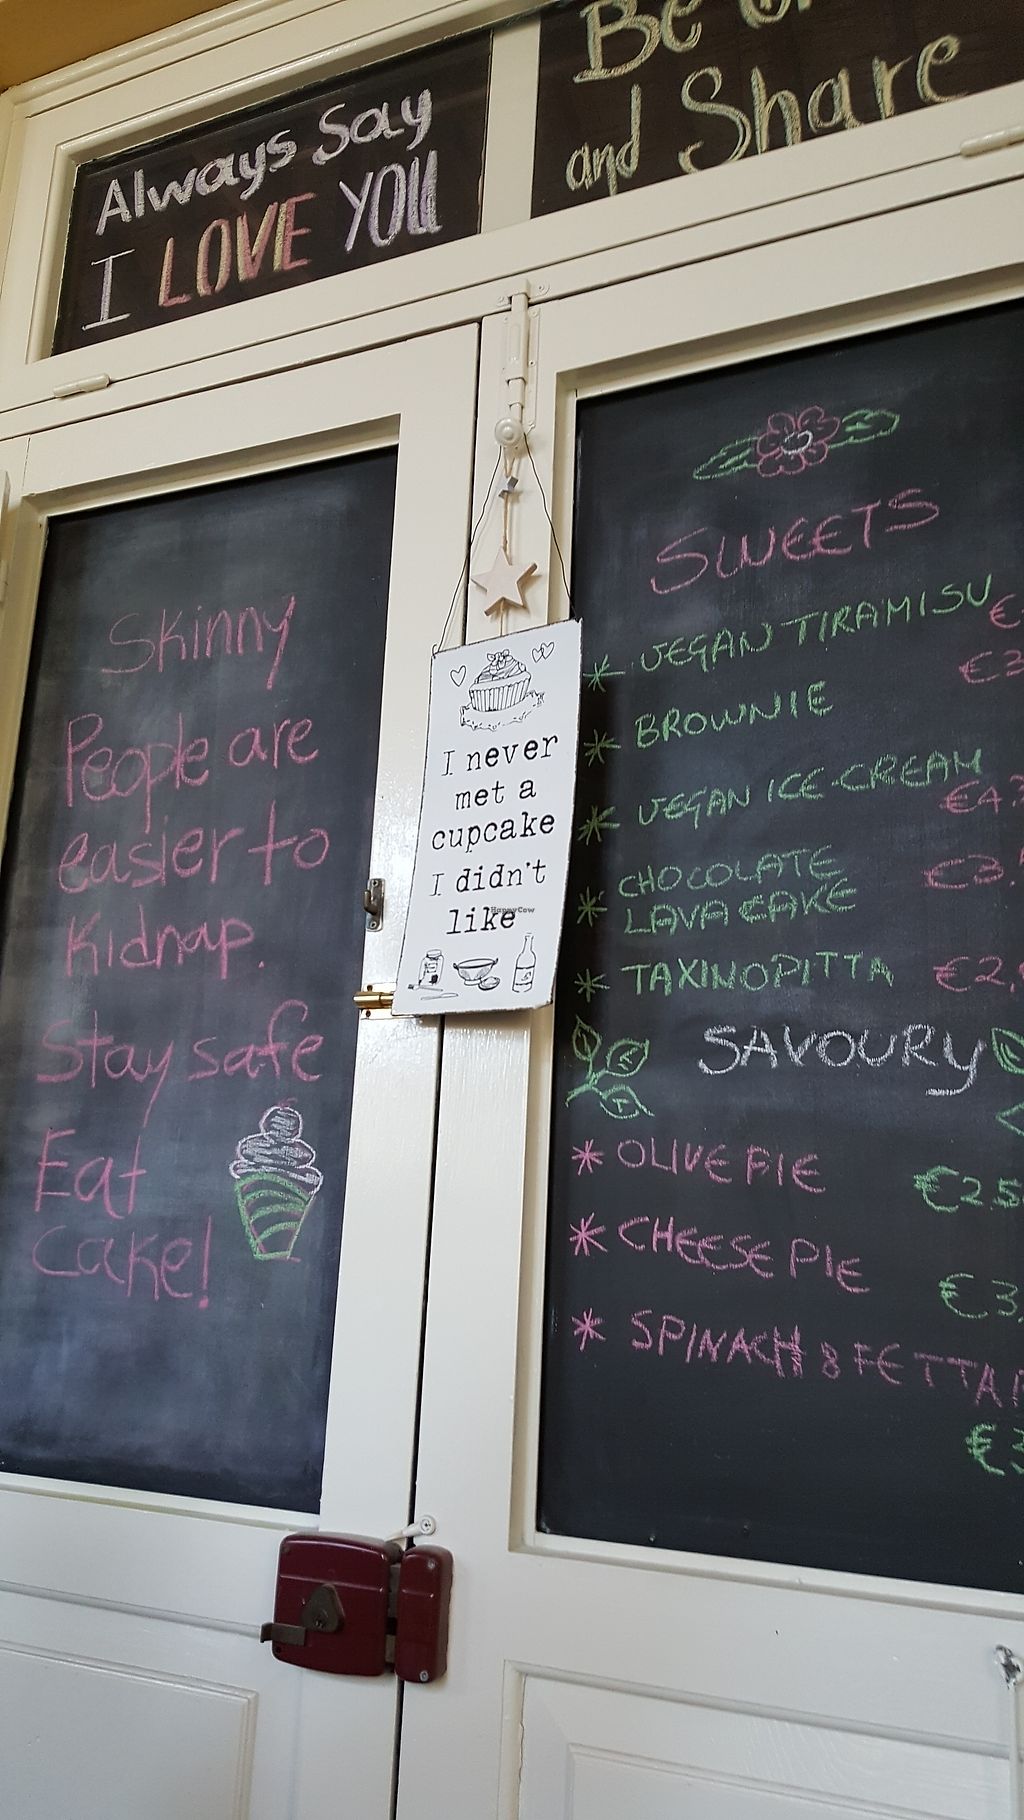 Always Say
I LOVE YOU
Be
and Share
Skinny
People are
easier to
Kidnap.
Stay safe
Eat
Cake!
I never
met a
cupcake
I didn't
like
HappyCow
SWEETS
* VEGAN TIRAMISU €
€3
* BROWNIE
* VEGAN ICE-CREAM
€4.
* CHOCOLATE €3.
LAVA CAKE
* TAXINOPITTA €2,
SAVOURY
* OLIVE PIE €2.5
* CHEESE PIE
€3,
* SPINACH & FETTA
€3